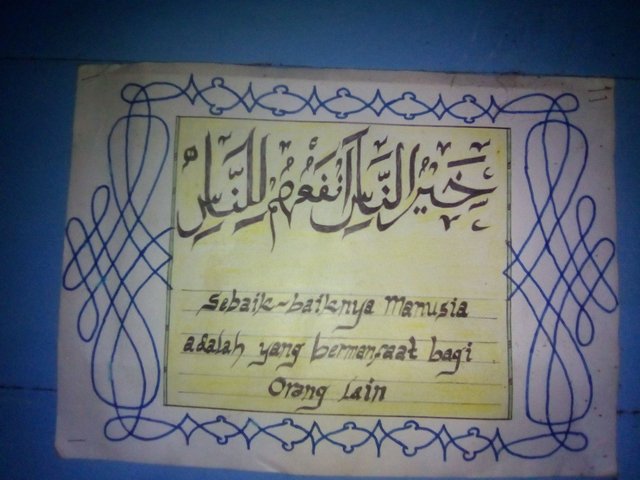 خَيْرُ النَّاسِ أَنْفَعُهُمْ لِلنَّاسِ
Sebaik-baiknya Manusia
adalah yang bermanfaat bagi
Orang Lain
11